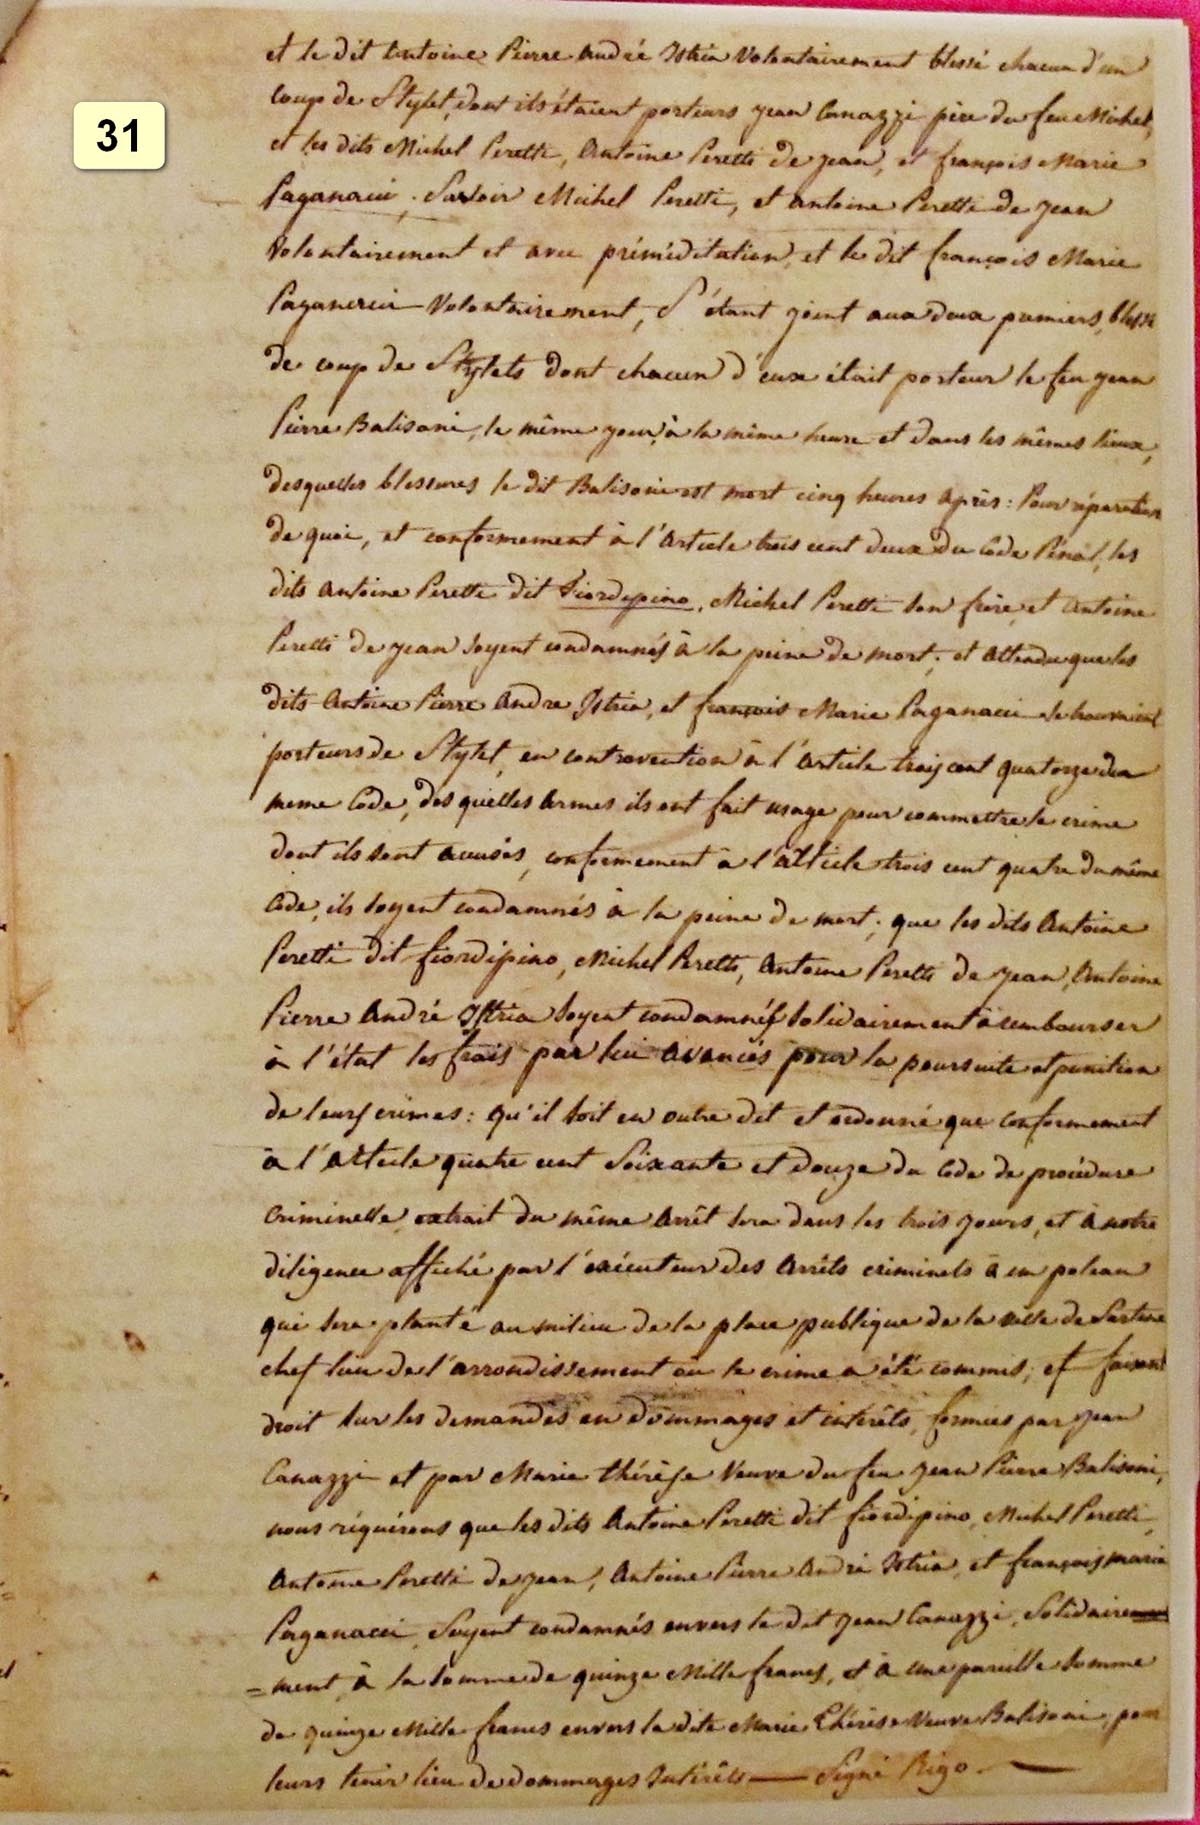 31
et le dit Antoine Pierre André Istria volontairement blessé chacun d'un
coup de Stylet, dont ils étaient porteurs jean Canazzi père du feu Michel,
et les dits Michel Peretti, Antoine Peretti de jean, et françois Marie
Paganacci, Savoir Michel Peretti, et antoine Peretti de jean
volontairement et avec préméditation, et le dit françois Marie
Paganacci volontairement, S'étant joint aux deux premiers, blessé
de coup de Stylets dont chacun d'eux était porteur le feu jean
Pierre Balisoni, le même jour, à la même heure et dans les mêmes lieux,
desquelles blessures le dit Balisoni est mort cinq heures après : Pour réparation
de quoi, et conformement à l'article trois cent deux du Code Pénal, les
dits antoine Peretti dit Fiordipino, Michel Peretti son frère, et antoine
Peretti de jean soyent condamnés à la peine de mort ; et attendu que les
dits Antoine Pierre André Istria, et françois Marie Paganacci se trouvaient
porteurs de Stylet, en contravention à l'article trois cent quatorze du
meme Code, des quelles armes ils ont fait usage pour commettre le crime
dont ils sont accusés, conformement à l'article trois cent quatre du même
Code, ils soyent condamnés à la peine de mort ; que les dits Antoine
Peretti dit fiordipino, Michel Peretti, Antoine Peretti de jean, Antoine
Pierre André Istria soyent condamnés solidairement à rembourser
à l'état les frais par lui avancés pour la poursuite et punition
de leurs crimes : qu'il soit en outre dit et ordonné que conformement
à l'article quatre cent Soixante et douze du Code de procédure
Criminelle, extrait du même arrêt sera dans les trois jours, et à notre
diligence affiché par l'exécuteur des arrêts criminels à un poteau
qui sera planté au milieu de la place publique de la ville de Sartene
chef lieu de l'arrondissement où le crime a été commis ; et faisant
droit sur les demandes en dommages et intérêts, formées par jean
Canazzi et par Marie thérèse veuve du feu jean Pierre Balisoni,
nous réquérons que les dits Antoine Peretti dit fiordipino, Michel Peretti,
Antoine Peretti de jean, Antoine Pierre André Istria, et françois marie
Paganacci, Soyent condamnés envers le dit jean Canazzi, Solidaire
=ment, à la somme de quinze Mille francs, et à une pareille somme
de quinze Mille francs envers la dite Marie Thérèse Veuve Balisoni, pour
leurs tenir lieu de dommages Intérêts — Signé Rigo —